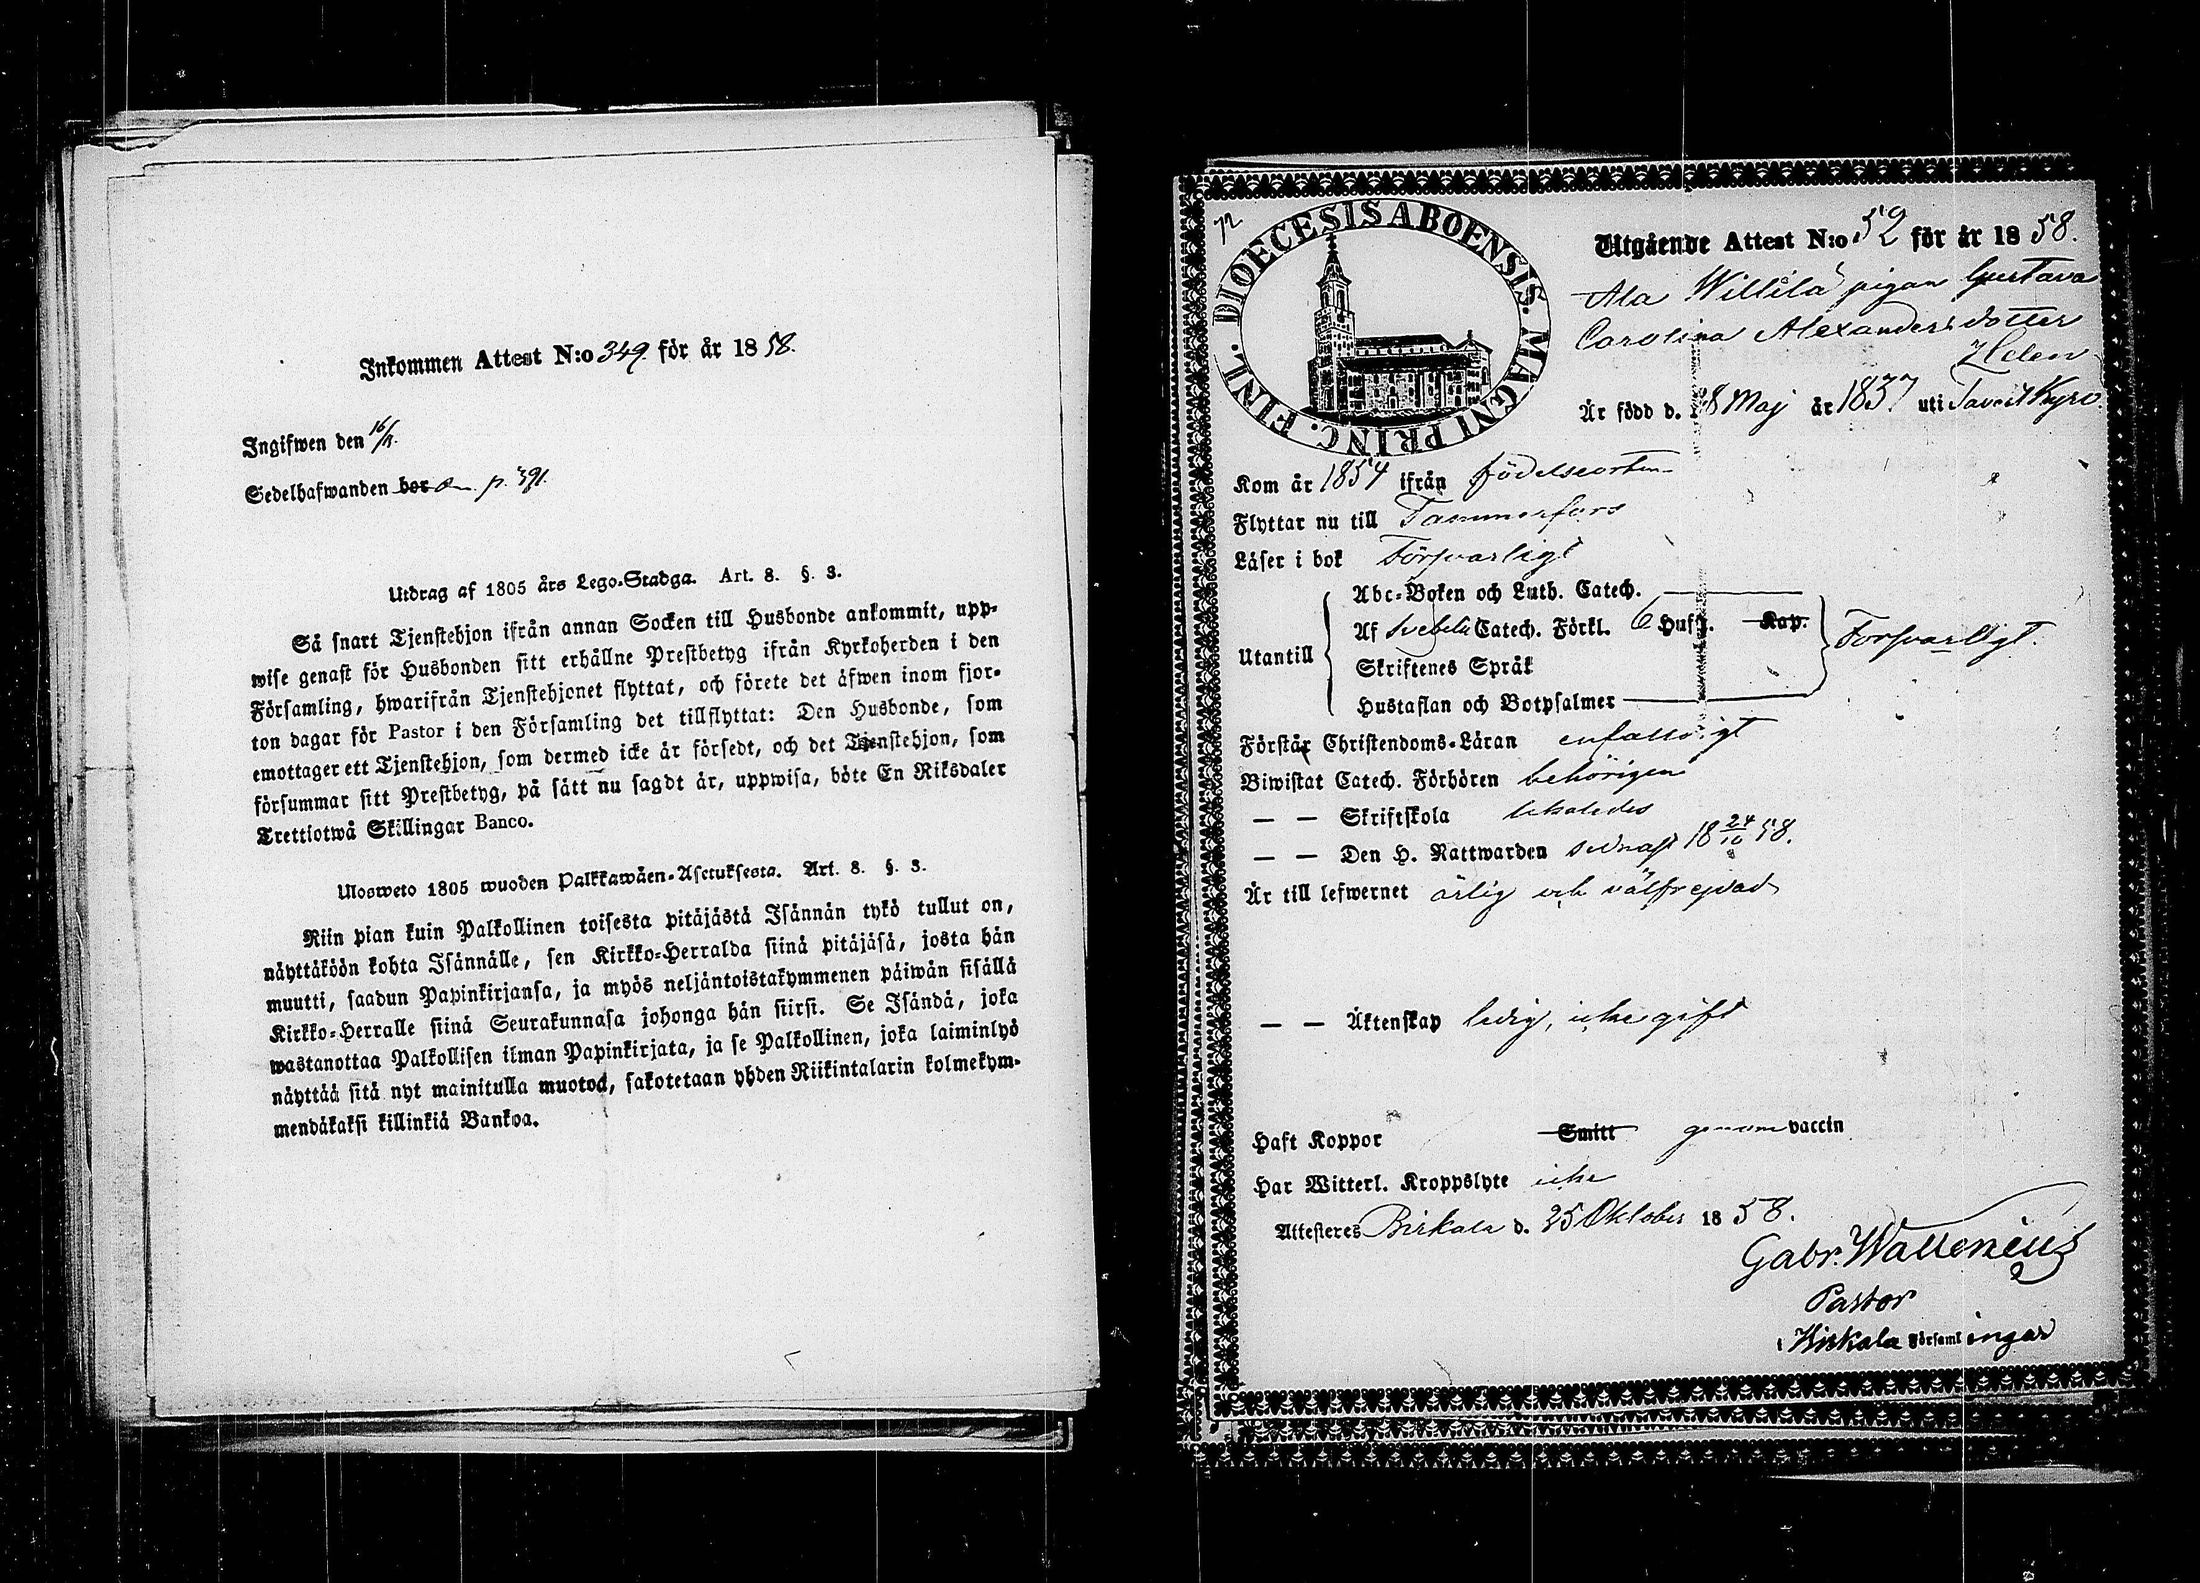 Inkommen Attest N:o 349. för år 1858.
Ingifwen den 16/11.
Sedelhafwanden bor p. 391.
Utdrag af 1805 års Lego-Stadga. Art. 8. §. 3.
Så snart Tjenstehjon ifrån annan Socken till Husbonde ankommit, upp-
wise genast för Husbonden sitt erhållne Prestbetyg ifrån Kyrkoherden i den
Församling, hwarifrån Tjenstehjonet flyttat, och förete det äfwen inom fjor-
ton dagar för Pastor i den Församling det tillflyttat: Den Husbonde, som
emottager ett Tjenstehjon, som dermed icke är försedt, och det Tjenstehjon, som
försummar sitt Prestbetyg, på sätt nu sagdt är, uppwisa, böte En Riksdaler
Trettiotwå Skillingar Banco.
Ulosweto 1805 wuoden Palkkawäen-Asetuksesta. Art. 8. §. 3.
Niin pian kuin Palkollinen toisesta pitäjästä Isännän tykö tullut on,
näyttäköön kohta Isännälle, sen Kirkko-Herralda siinä pitäjäsä, josta hän
muutti, saadun Papinkirjansa, ja myös neljäntoistakymmenen päiwän sisällä
Kirkko-Herralle siinä Seurakunnasa johonga hän siirsi. Se Isändä, joka
wastanottaa Palkollisen ilman Papinkirjata, ja se Palkollinen, joka laiminlyö
näyttää sitä nyt mainitulla muotod, sakotetaan yhden Riikintalarin kolmekym-
mendäkaksi killinkiä Bankoa.
72
DIOECESIS ABOENSIS. MAGNI PRINC. FINL.
Utgående Attest N:o 52 för år 1858.
Ala Willilä pigan Gustava
Carolina Alexandersdotter
Helen
Är född d. 28 Maj år 1837 uti Tavast Kyro
Kom år 1854 ifrån födelseorten
Flyttar nu till Tammerfors
Läser i bok Försvarligt
Abc-Boken och Luth. Catech.
Af Svebelii Catech. Förkl. 6 Hufst. Kap.
Utantill
Skriftenes Språk
Försvarligt.
Hustaflan och Botpsalmer
Förstår Christendoms-Läran enfalldigt
Biwistat Catech. Förhören behörigen
— — Skriftskola likaledes
— — Den H. Nattwarden sednast 18 24/10 58.
Är till lefwernet ärlig och välfrejdad
— — Äktenskap ledig, icke gift
Haft Koppor Smitt genom vaccin
Har Witterl. Kroppslyte icke
Attesteres Birkala d. 25 Oktober 1858.
Gabr. Wallenius
Pastor
i Birkala Församlingar